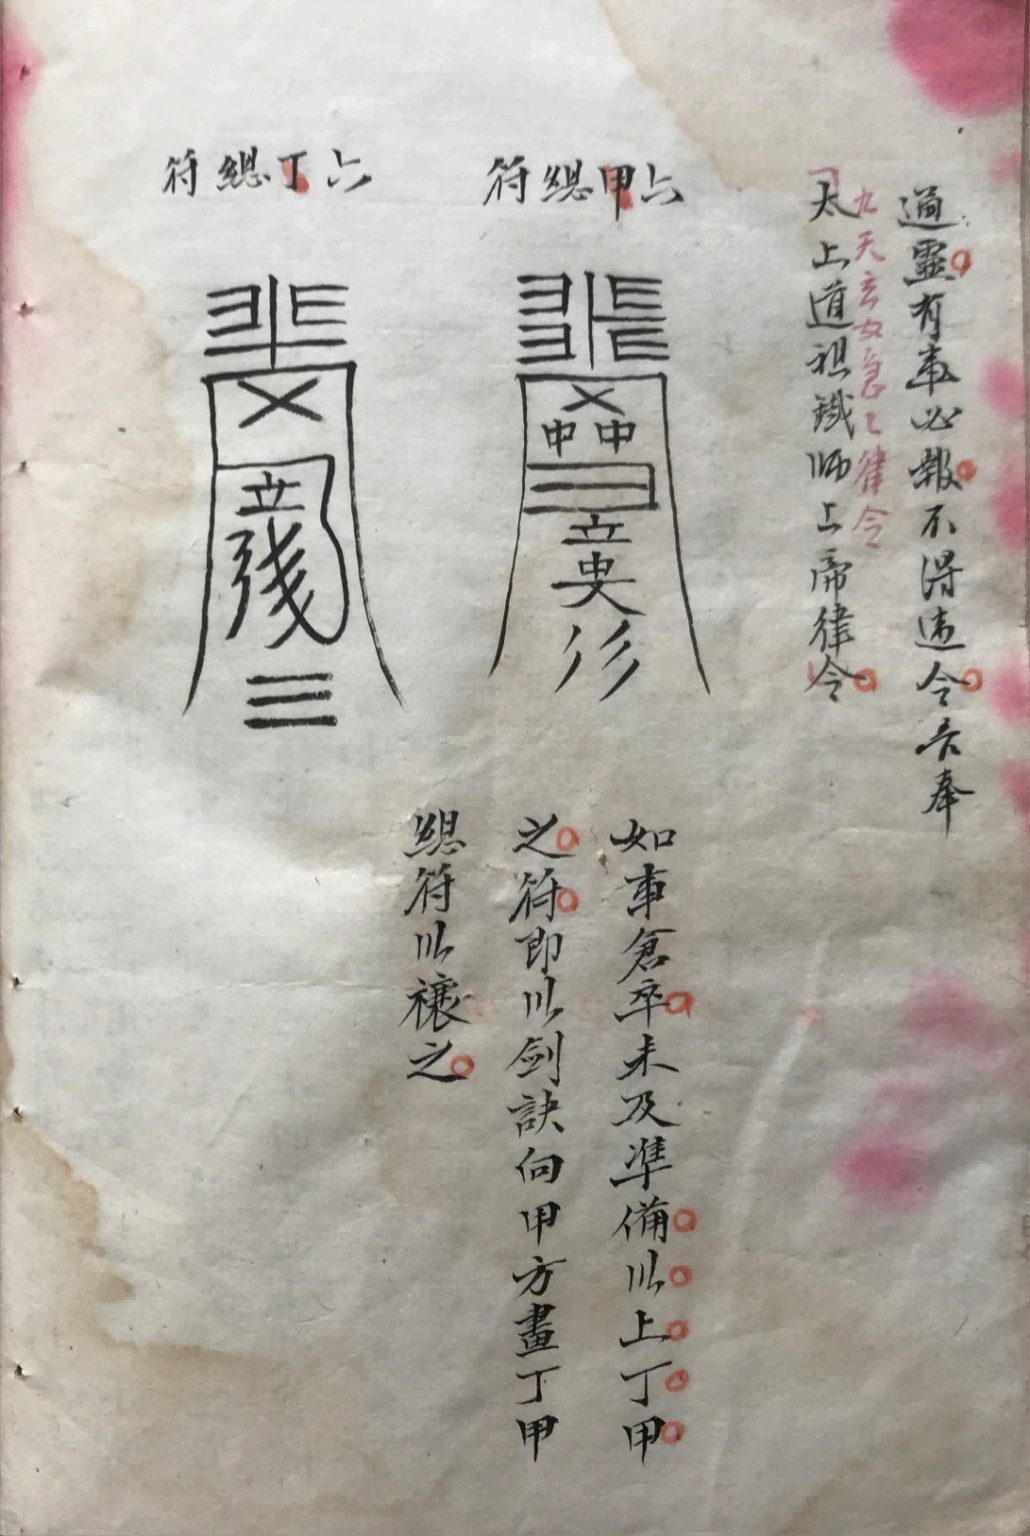 通靈有事必報不得違令吾奉
九天玄女急乀律令
太上道祖鐵師上帝律令
六甲總符
六丁總符
如事倉卒未及準備以上丁甲
之符即以劍訣向甲方畫丁甲
總符以禳之